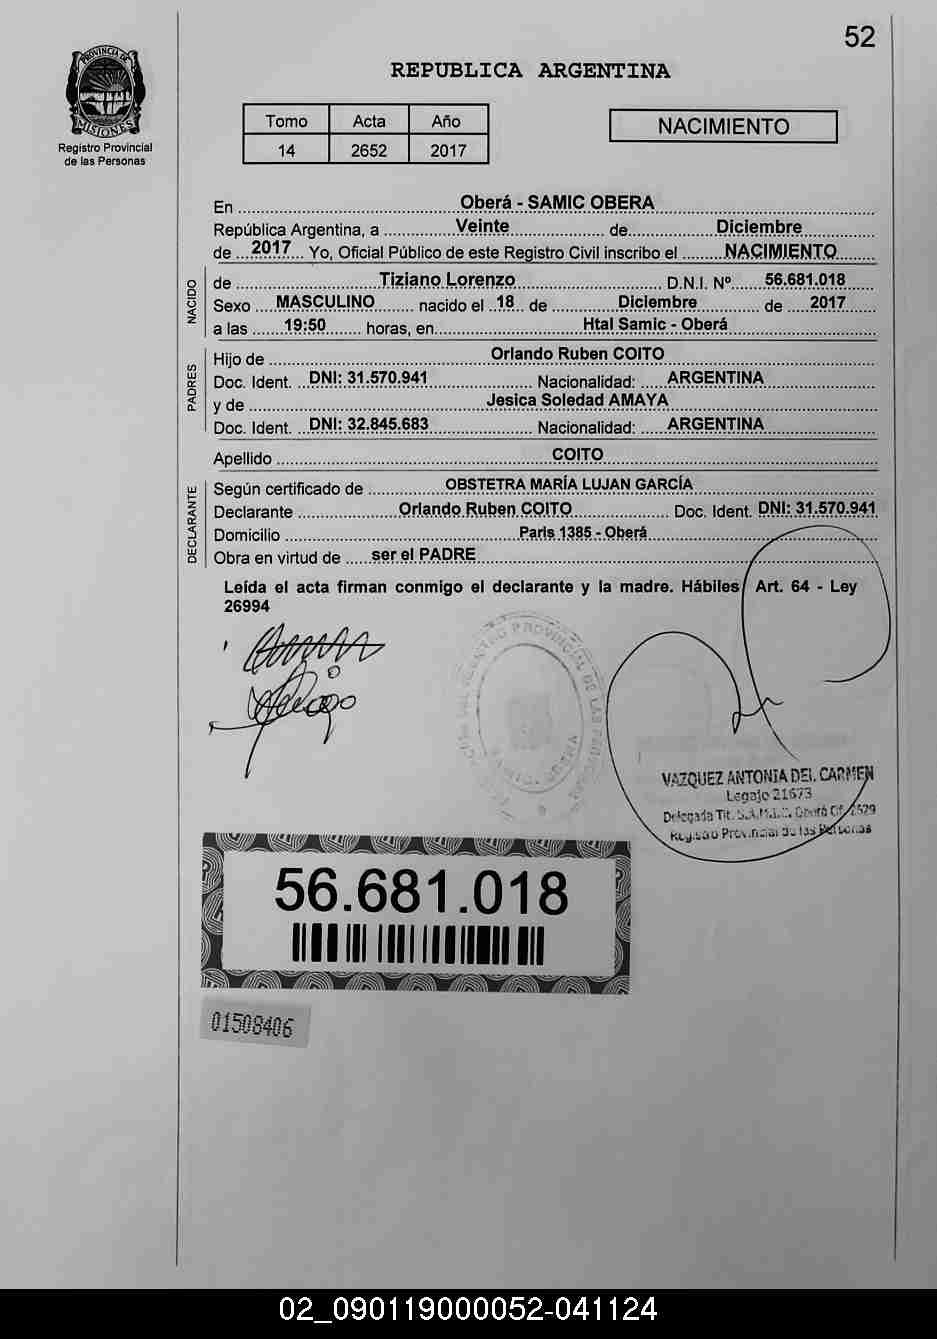 52
PROVINCIA DE
MISIONES
Registro Provincial
de las Personas
REPUBLICA ARGENTINA
Tomo Acta Año
14 2652 2017
NACIMIENTO
En Oberá - SAMIC OBERA
República Argentina, a Veinte de Diciembre
de 2017 Yo, Oficial Público de este Registro Civil inscribo el NACIMIENTO
NACIDO
de Tiziano Lorenzo D.N.I. Nº 56.681.018
Sexo MASCULINO nacido el 18 de Diciembre de 2017
a las 19:50 horas, en Htal Samic - Oberá
PADRES
Hijo de Orlando Ruben COITO
Doc. Ident. DNI: 31.570.941 Nacionalidad: ARGENTINA
y de Jesica Soledad AMAYA
Doc. Ident. DNI: 32.845.683 Nacionalidad: ARGENTINA
Apellido COITO
DECLARANTE
Según certificado de OBSTETRA MARÍA LUJAN GARCÍA
Declarante Orlando Ruben COITO Doc. Ident. DNI: 31.570.941
Domicilio Paris 1385 - Oberá
Obra en virtud de ser el PADRE
Leída el acta firman conmigo el declarante y la madre. Hábiles Art. 64 - Ley
26994
PROVINCIAL DE LAS
VAZQUEZ ANTONIA DEL CARMEN
Legajo 21673
Delegada Tit. Oberá
Registro Provincial de las Personas
56.681.018
01508406
02_090119000052-041124